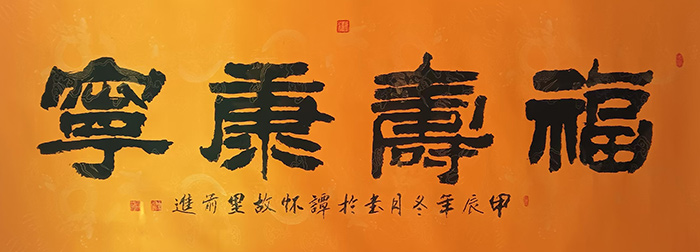 福壽康寧
甲辰年冬月書於譚怀故里前進